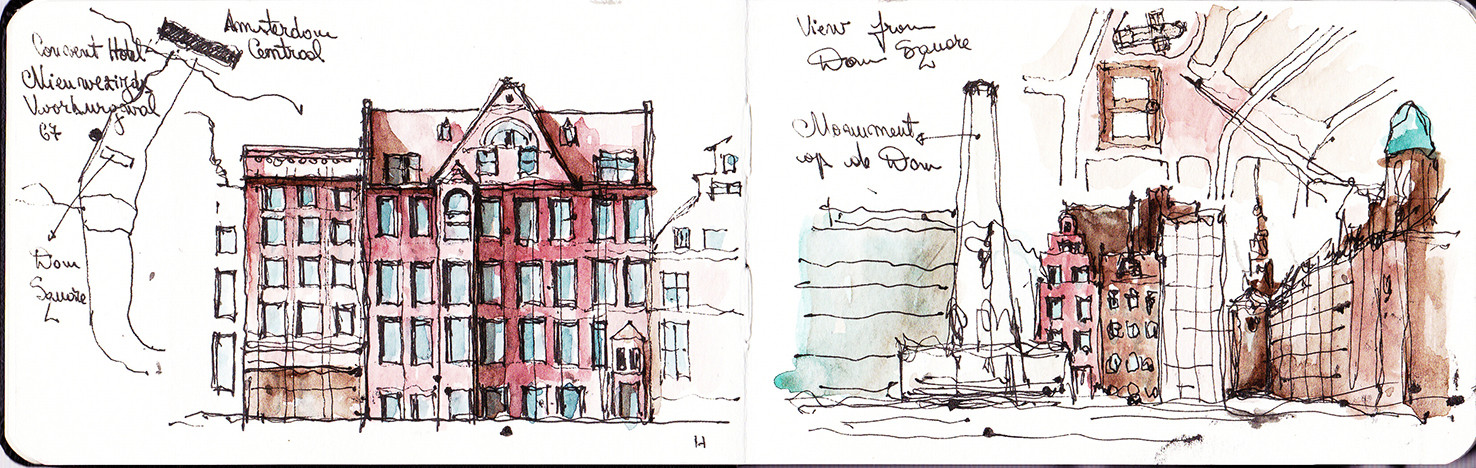 Amsterdam
Centraal
Convent Hotel
Nieuwezijds
Voorburgwal
67
Dam
Square
View from
Dam Square
Monument
op de Dam